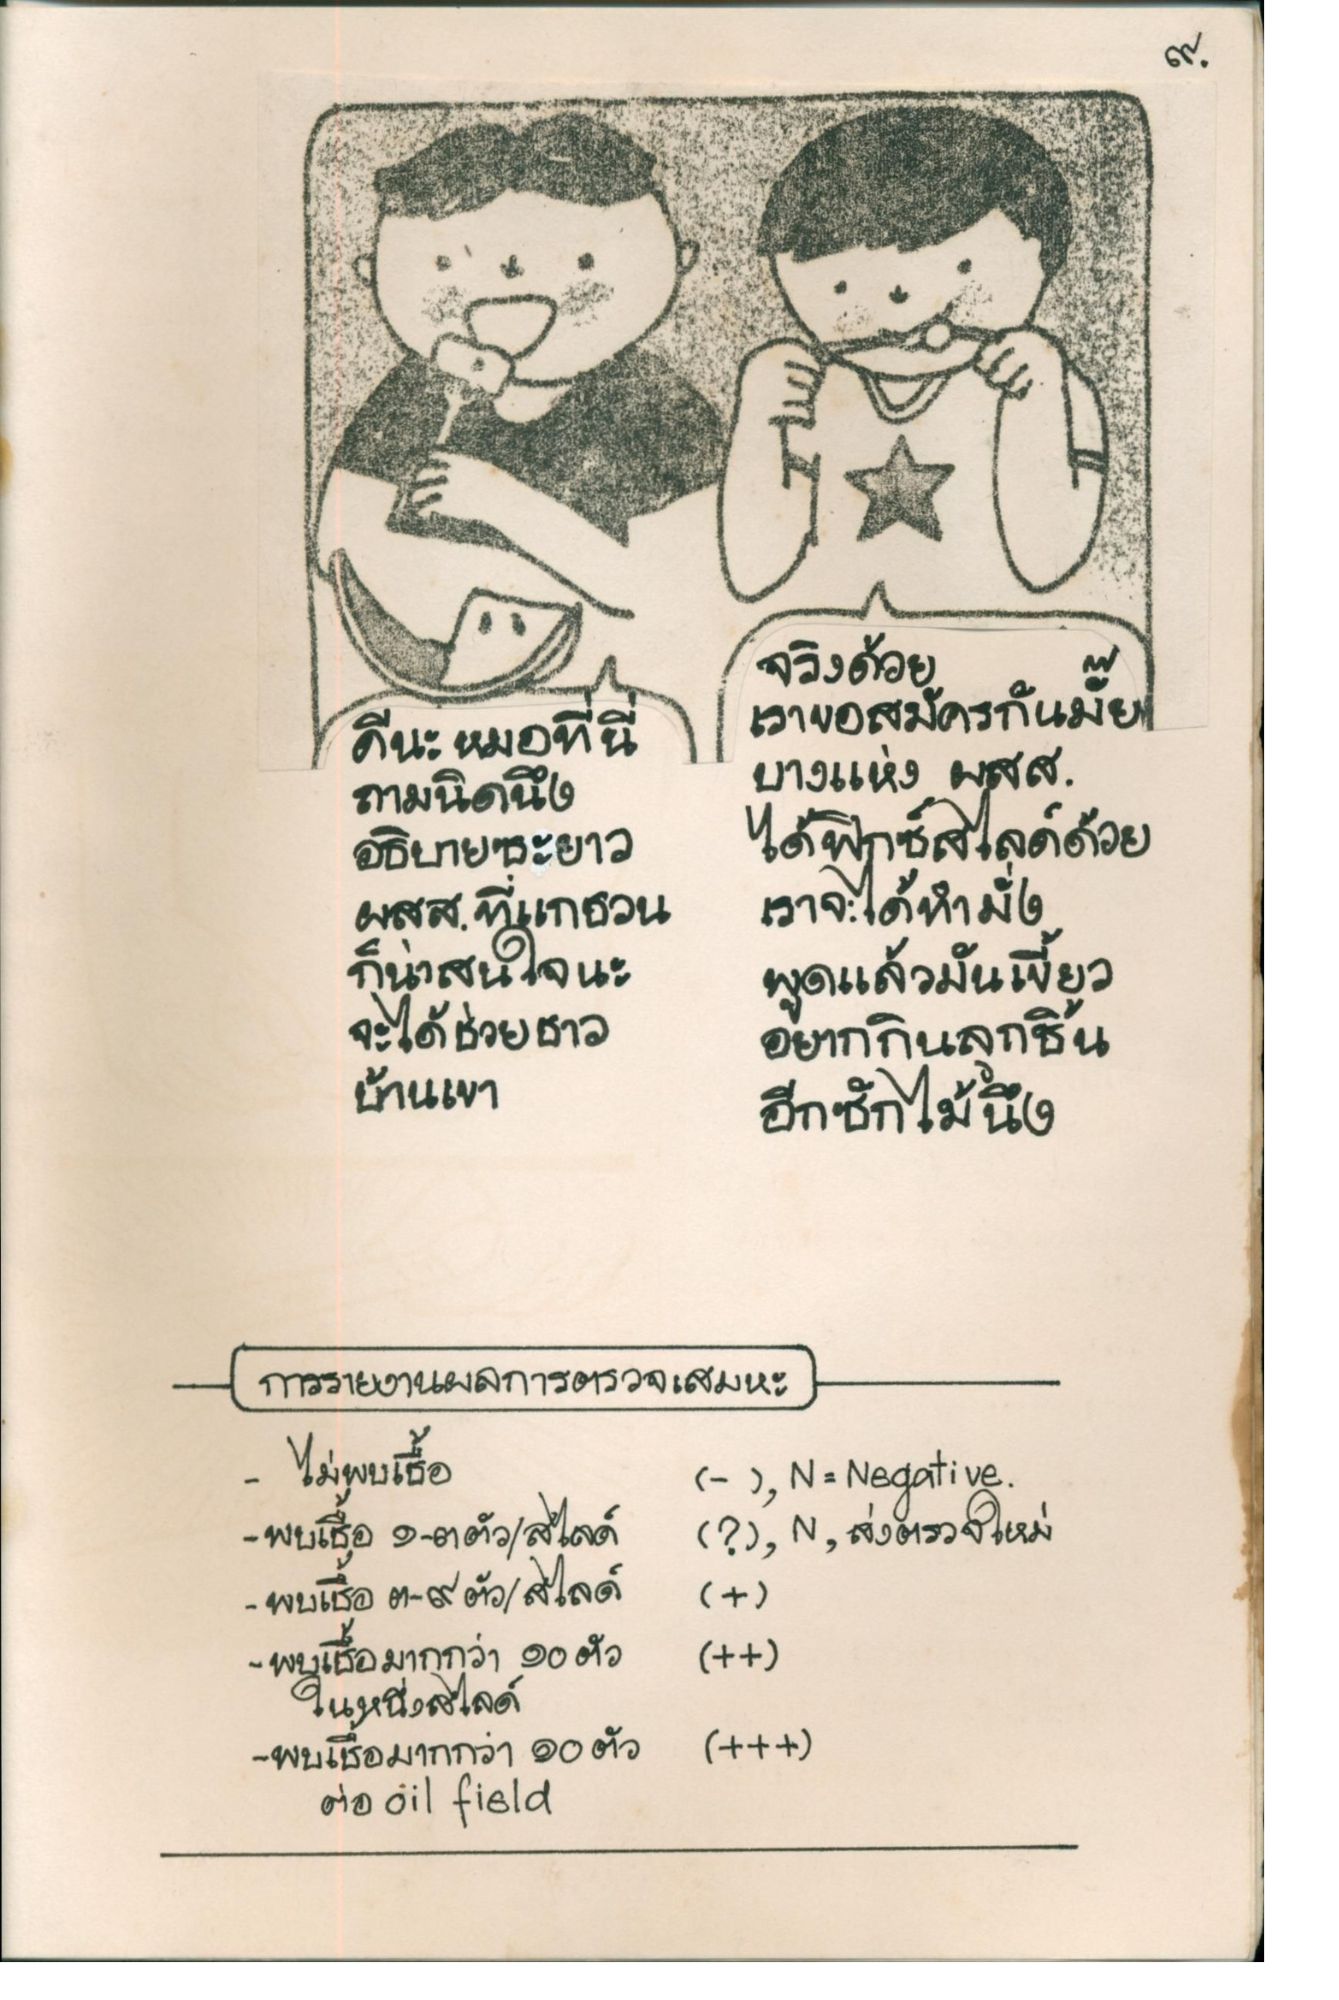 ๙.
ดีนะ หมอที่นี่
ถามนิดนึง
อธิบายซะยาว
ผสส.ที่แกชวน
ก็น่าสนใจนะ
จะได้ช่วยชาว
บ้านเขา
จริงด้วย
เราขอสมัครกันมั๊ย
บางแห่ง ผสส.
ได้ฟิกซ์สไลด์ด้วย
เราจะได้ทำมั่ง
พูดแล้วมันเขี้ยว
อยากกินลูกชิ้น
อีกซักไม้นึง
การรายงานผลการตรวจเสมหะ
- ไม่พบเชื้อ (-), N = Negative.
- พบเชื้อ ๑-๓ ตัว/สไลด์ (?), N, ส่งตรวจใหม่
- พบเชื้อ ๓-๙ ตัว/สไลด์ (+)
- พบเชื้อมากกว่า ๑๐ ตัว (++)
ในหนึ่งสไลด์
- พบเชื้อมากกว่า ๑๐ ตัว (+++)
ต่อ oil field